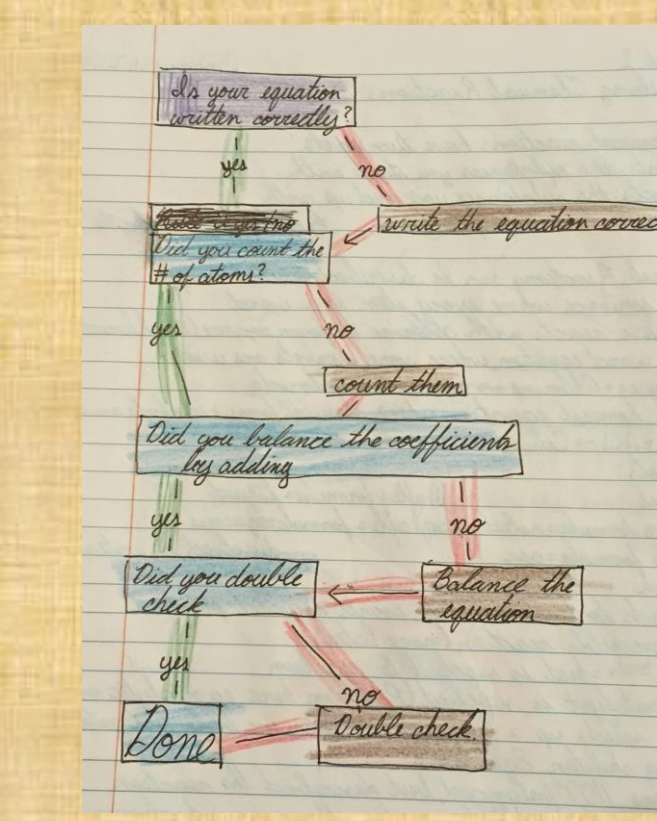 Is your equation
written correctly?
yes
no
write the equation correc
Did you count the
# of atoms?
yes
no
count them
Did you balance the coefficients
by adding
yes
no
Did you double
check
Balance the
equation
yes
no
Done
Double check.